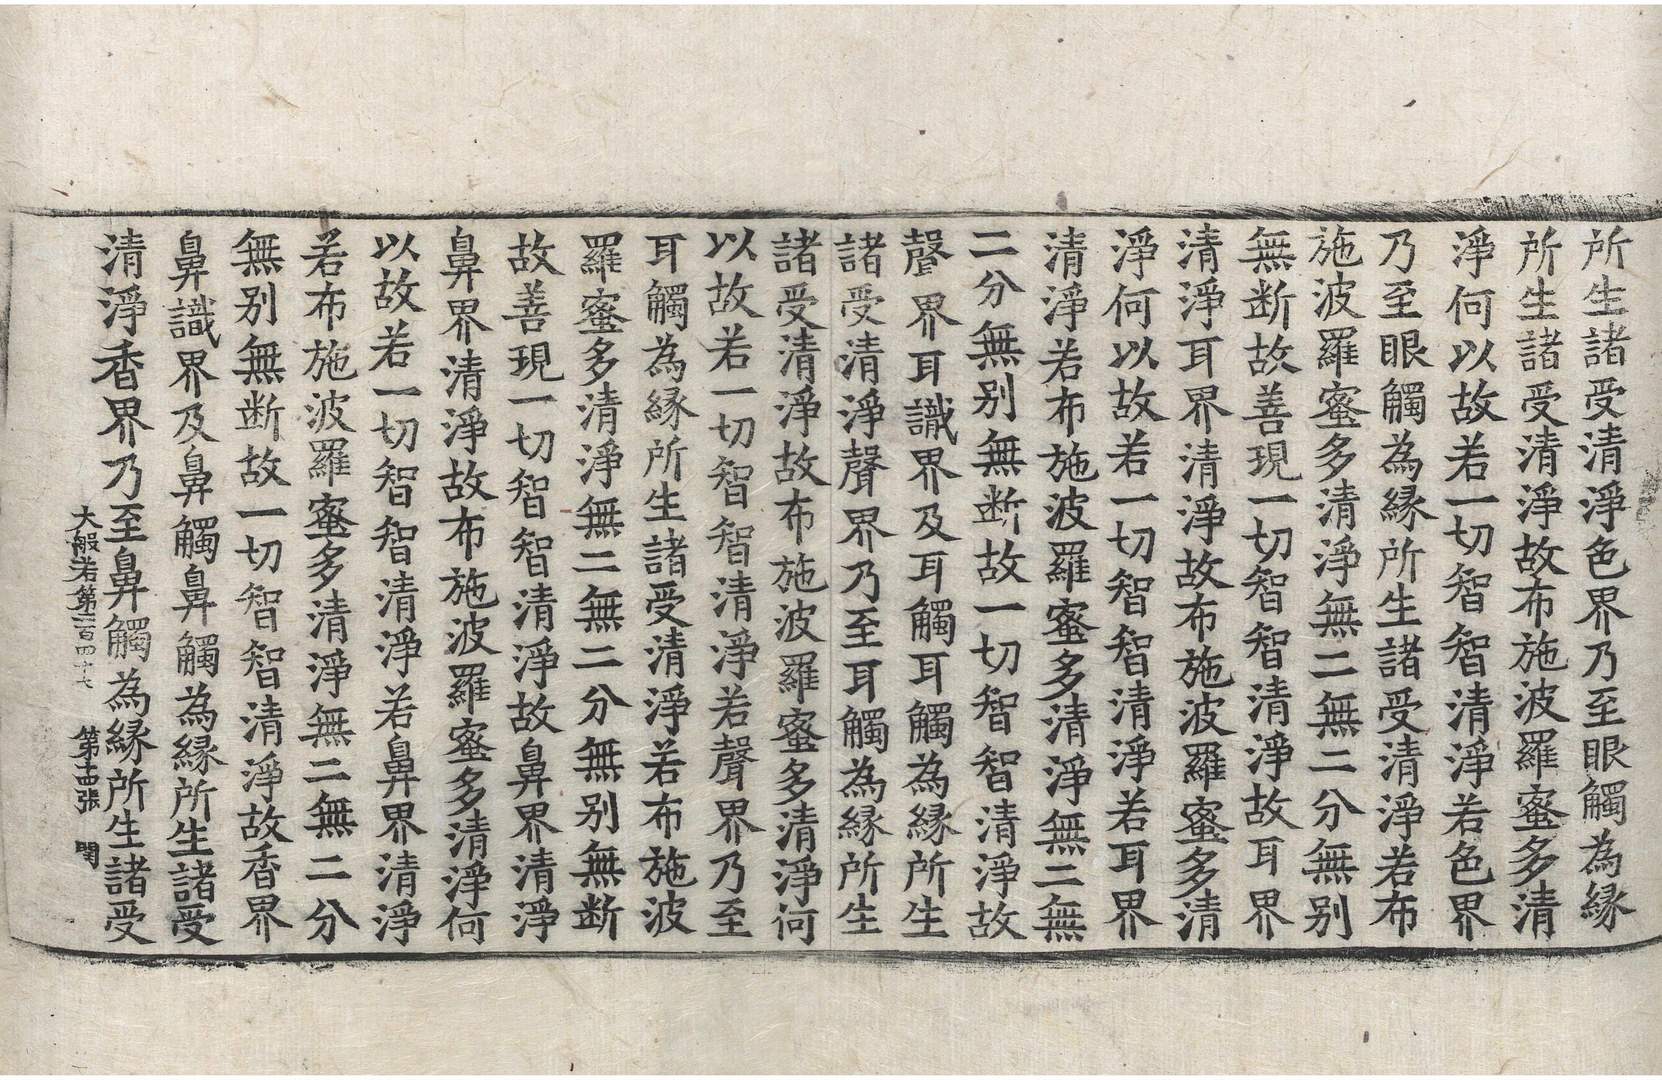 所生諸受清淨色界乃至眼觸為縁
所生諸受清淨故布施波羅蜜多清
淨何以故若一切智智清淨若色界
乃至眼觸為縁所生諸受清淨若布
施波羅蜜多清淨無二無二分無別
無断故善現一切智智清淨故耳界
清淨耳界清淨故布施波羅蜜多清
淨何以故若一切智智清淨若耳界
清淨若布施波羅蜜多清淨無二無
二分無別無断故一切智智清淨故
聲界耳識界及耳觸耳觸為縁所生
諸受清淨聲界乃至耳觸為縁所生
諸受清淨故布施波羅蜜多清淨何
以故若一切智智清淨若聲界乃至
耳觸為縁所生諸受清淨若布施波
羅蜜多清淨無二無二分無別無断
故善現一切智智清淨故鼻界清淨
鼻界清淨故布施波羅蜜多清淨何
以故若一切智智清淨若鼻界清淨
若布施波羅蜜多清淨無二無二分
無別無断故一切智智清淨故香界
鼻識界及鼻觸鼻觸為縁所生諸受
清淨香界乃至鼻觸為縁所生諸受
大般若第二百四十七 第十四張 閏